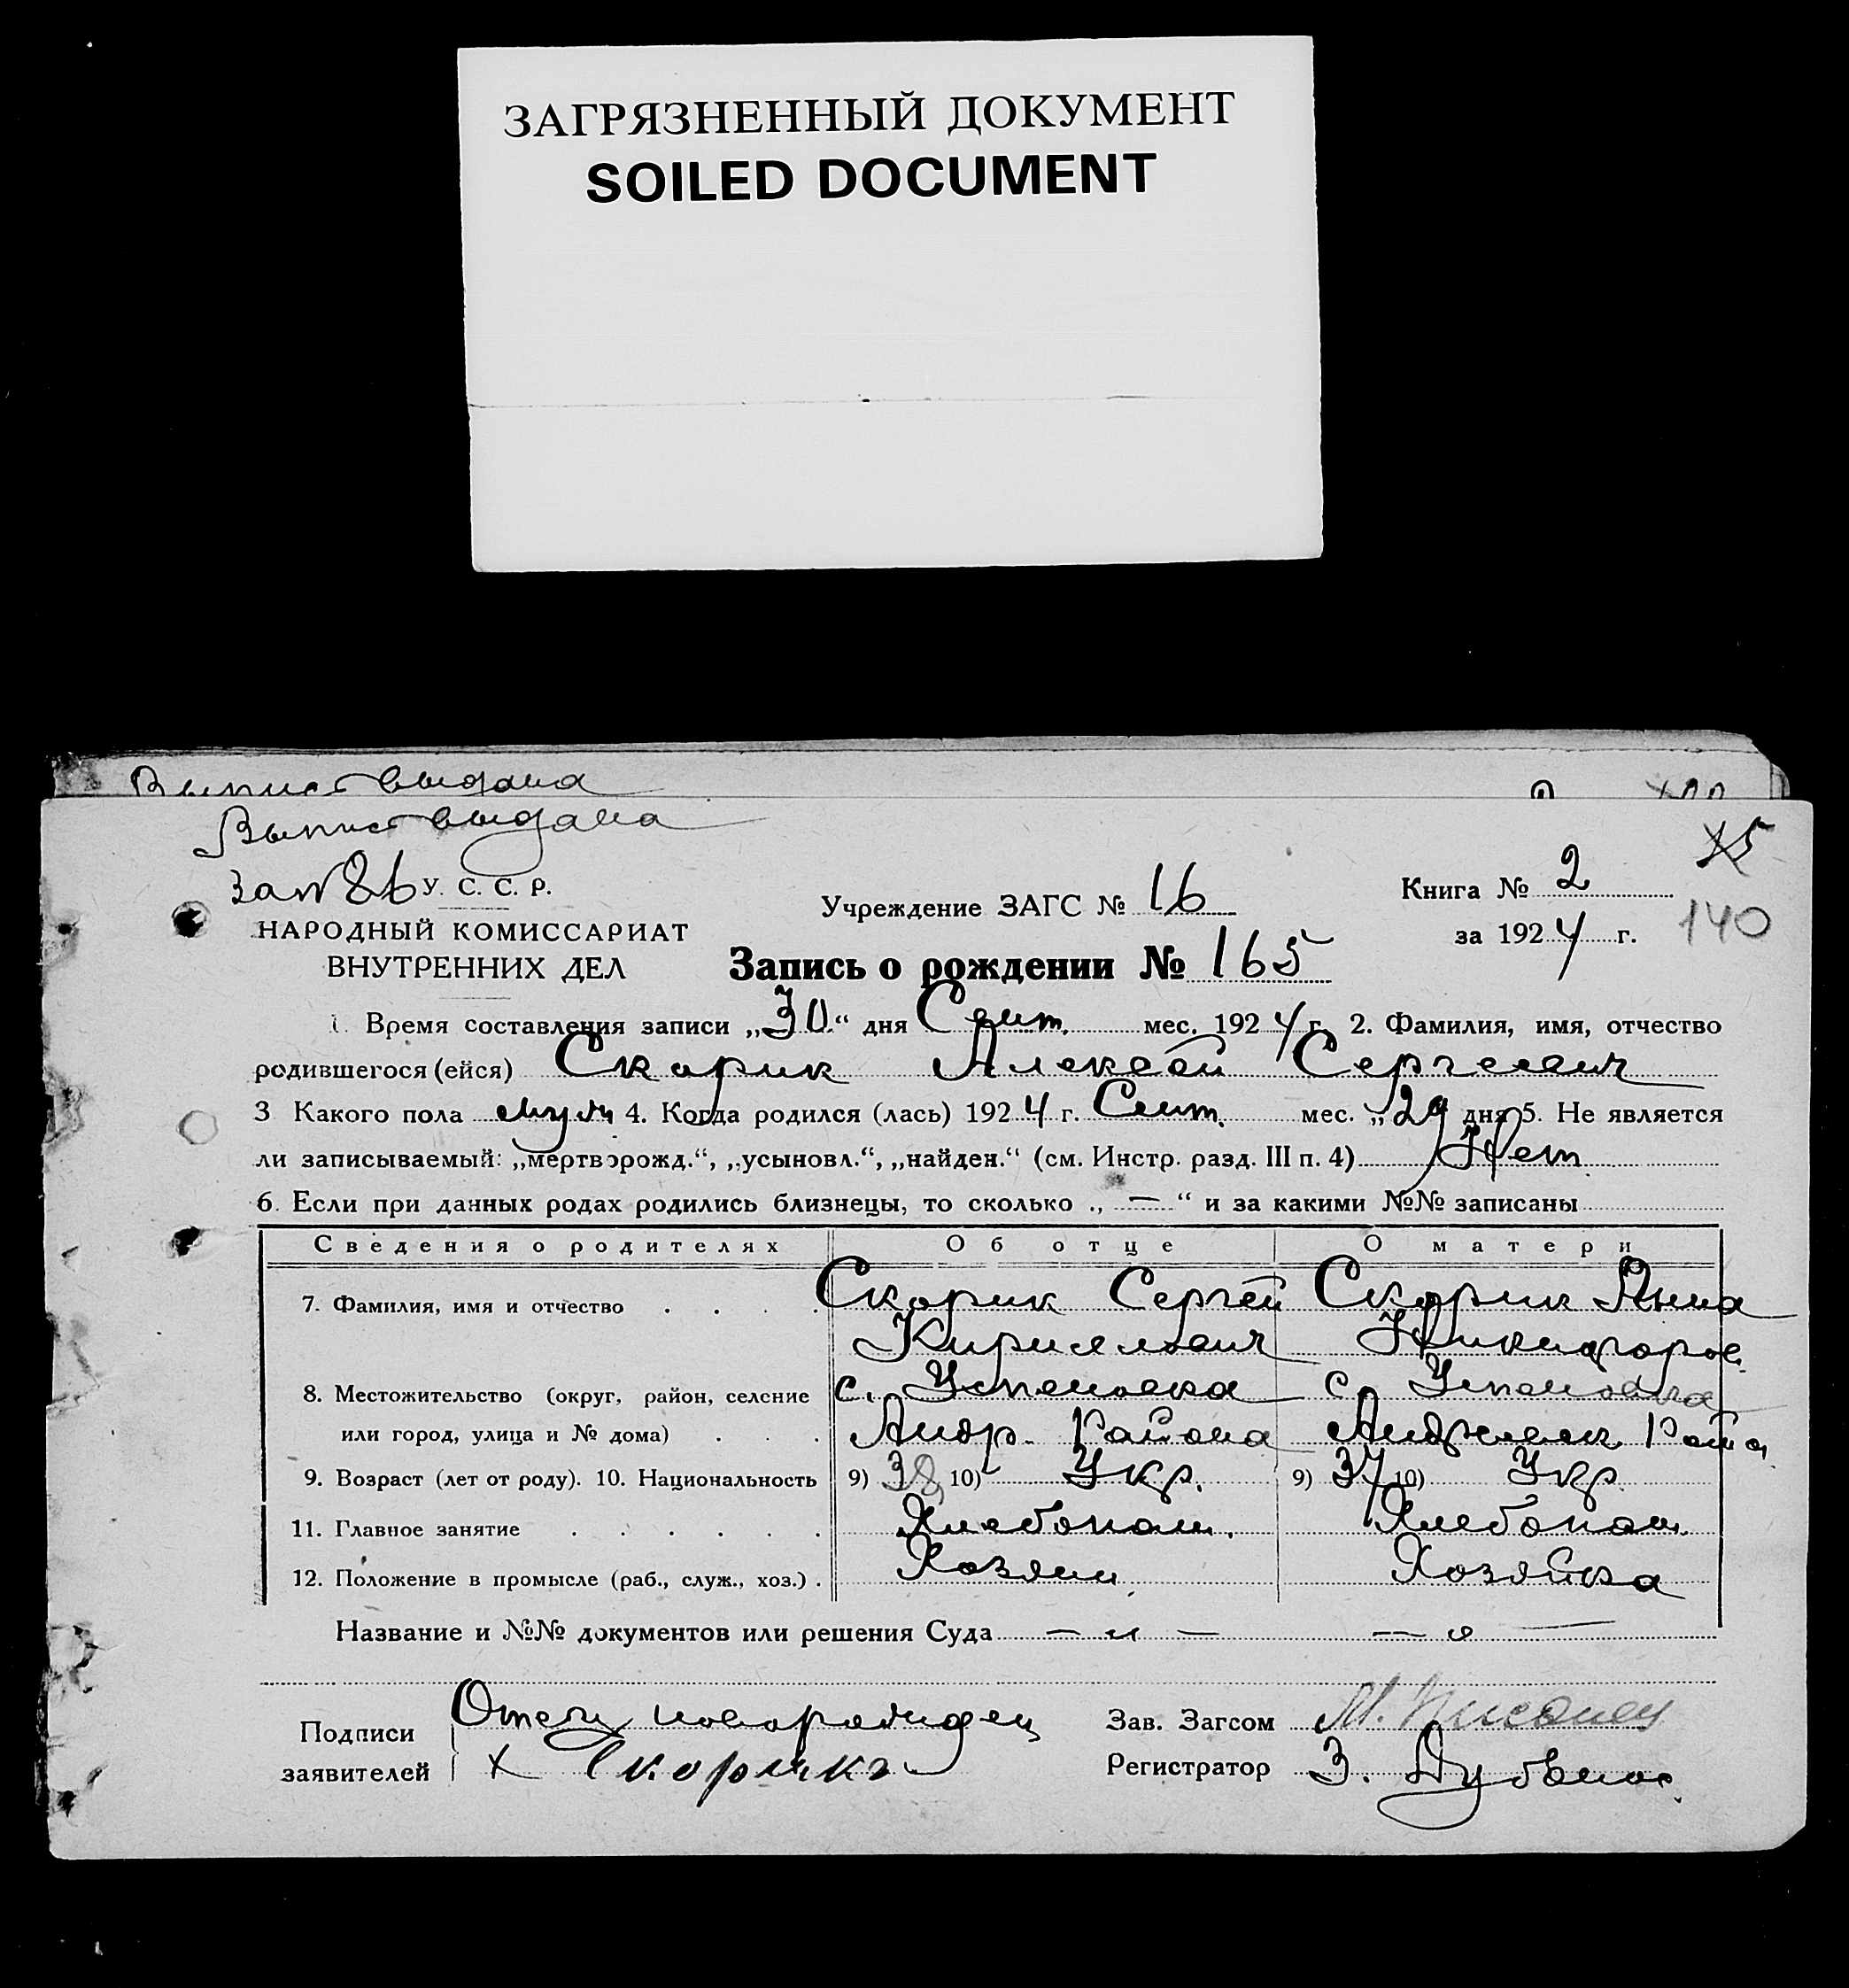 ЗАГРЯЗНЕННЫЙ ДОКУМЕНТ
SOILED DOCUMENT
Выпис выдана
Выпис выдана
15
зап 86 У. С. С. Р.
Учреждение ЗАГС № 16
Книга № 2
НАРОДНЫЙ КОМИССАРИАТ
за 1924 г.
140
ВНУТРЕННИХ ДЕЛ
Запись о рождении № 165
1. Время составления записи „30“ дня Сент. мес. 1924 г. 2. Фамилия, имя, отчество
родившегося (ейся) Скорик Алексей Сергеевич
3 Какого пола муж 4. Когда родился (лась) 1924 г. Сент. мес. „29 дня 5. Не является
ли записываемый: „мертворожд.“, „усыновл.“, „найден.“ (см. Инстр. разд. III п. 4) Нет
6. Если при данных родах родились близнецы, то сколько „ — “ и за какими №№ записаны
Сведения о родителях Об отце О матери
7. Фамилия, имя и отчество Скорик Сергей Скорик Анна
Кириллович Никифоров.
8. Местожительство (округ, район, селение с. Успеновка с. Успеновка
или город, улица и № дома) Андр. Района Андреевск. Район
9. Возраст (лет от роду). 10. Национальность 9) 38 10) Укр. 9) 37 10) Укр.
11. Главное занятие Хлебопаш. Хлебопаш.
12. Положение в промысле (раб., служ., хоз.) Хозяин Хозяйка
Название и №№ документов или решения Суда — „ — — „ —
Подписи Отец новорожден Зав. Загсом М.
заявителей х Скорика Регистратор З. Дубвенос.